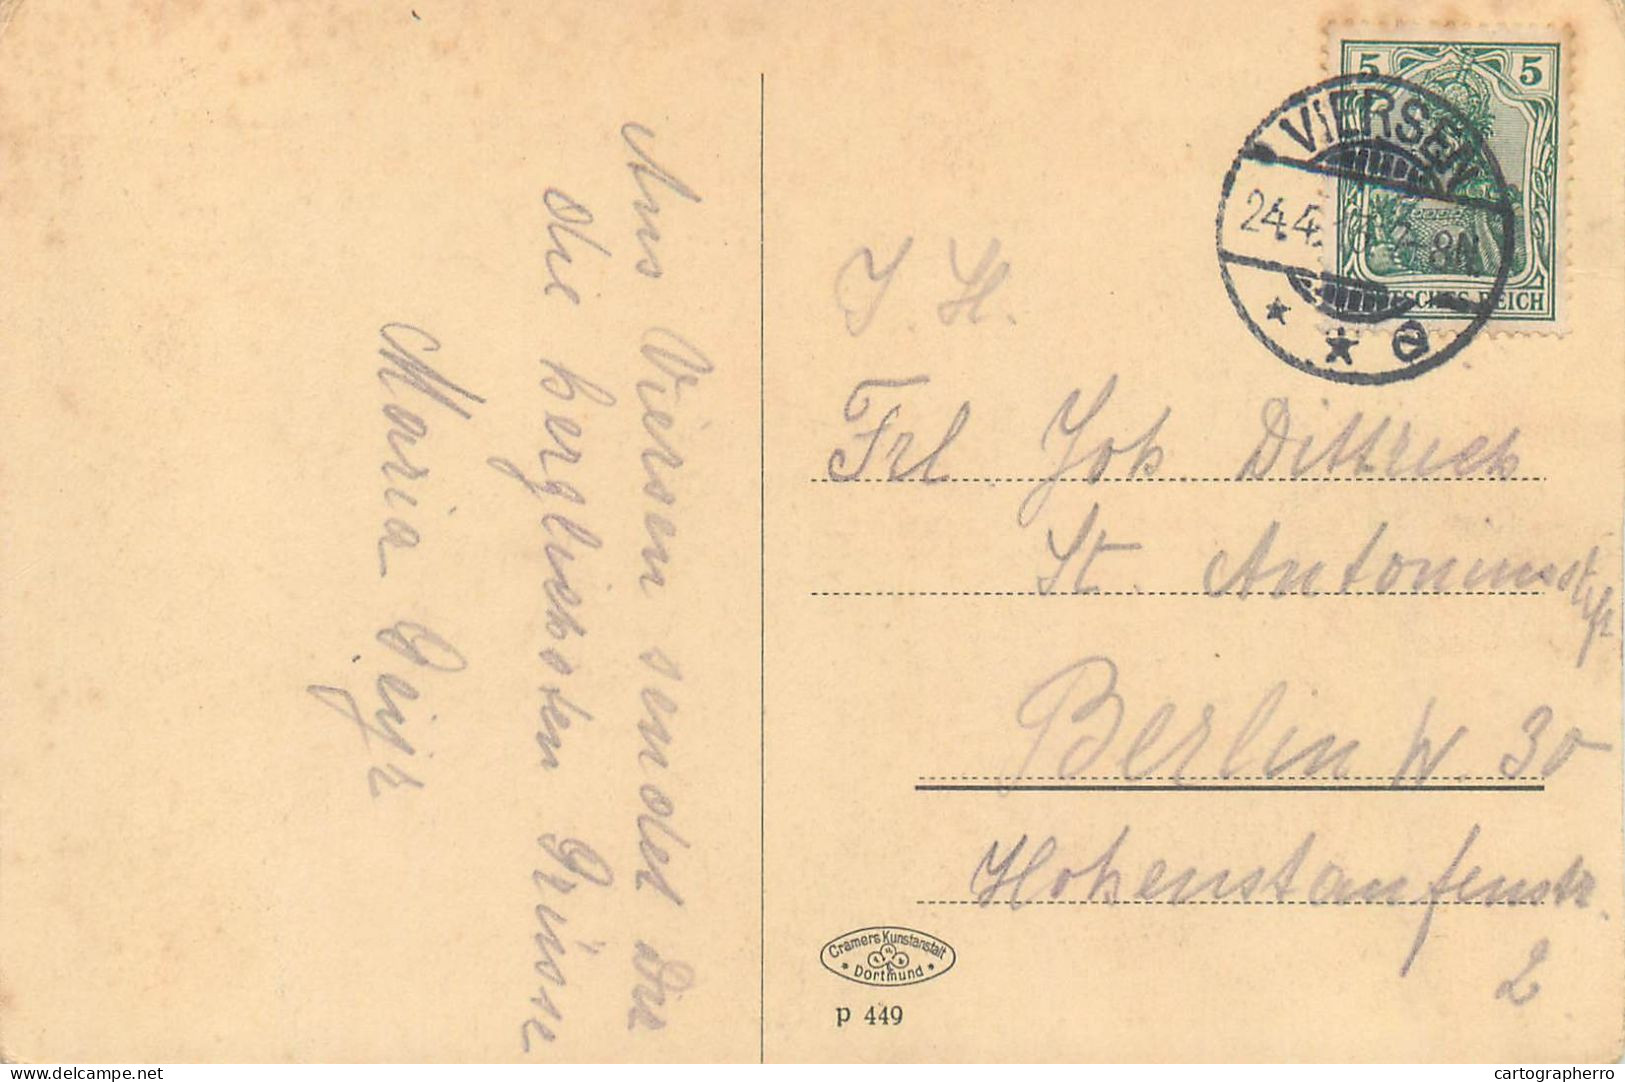 Aus Viersen sendet Dir
die herzlichsten Grüsse
Maria
5 5
DEUTSCHES REICH
VIERSEN
24.4. 8N.
* * e
J. H.
Frl Joh Dittrich
St. Antoniusstift
Berlin W. 30
Hohenstaufenstr.
2
Cramers Kunstanstalt
* Dortmund *
P 449
delcampe.net
cartographerro